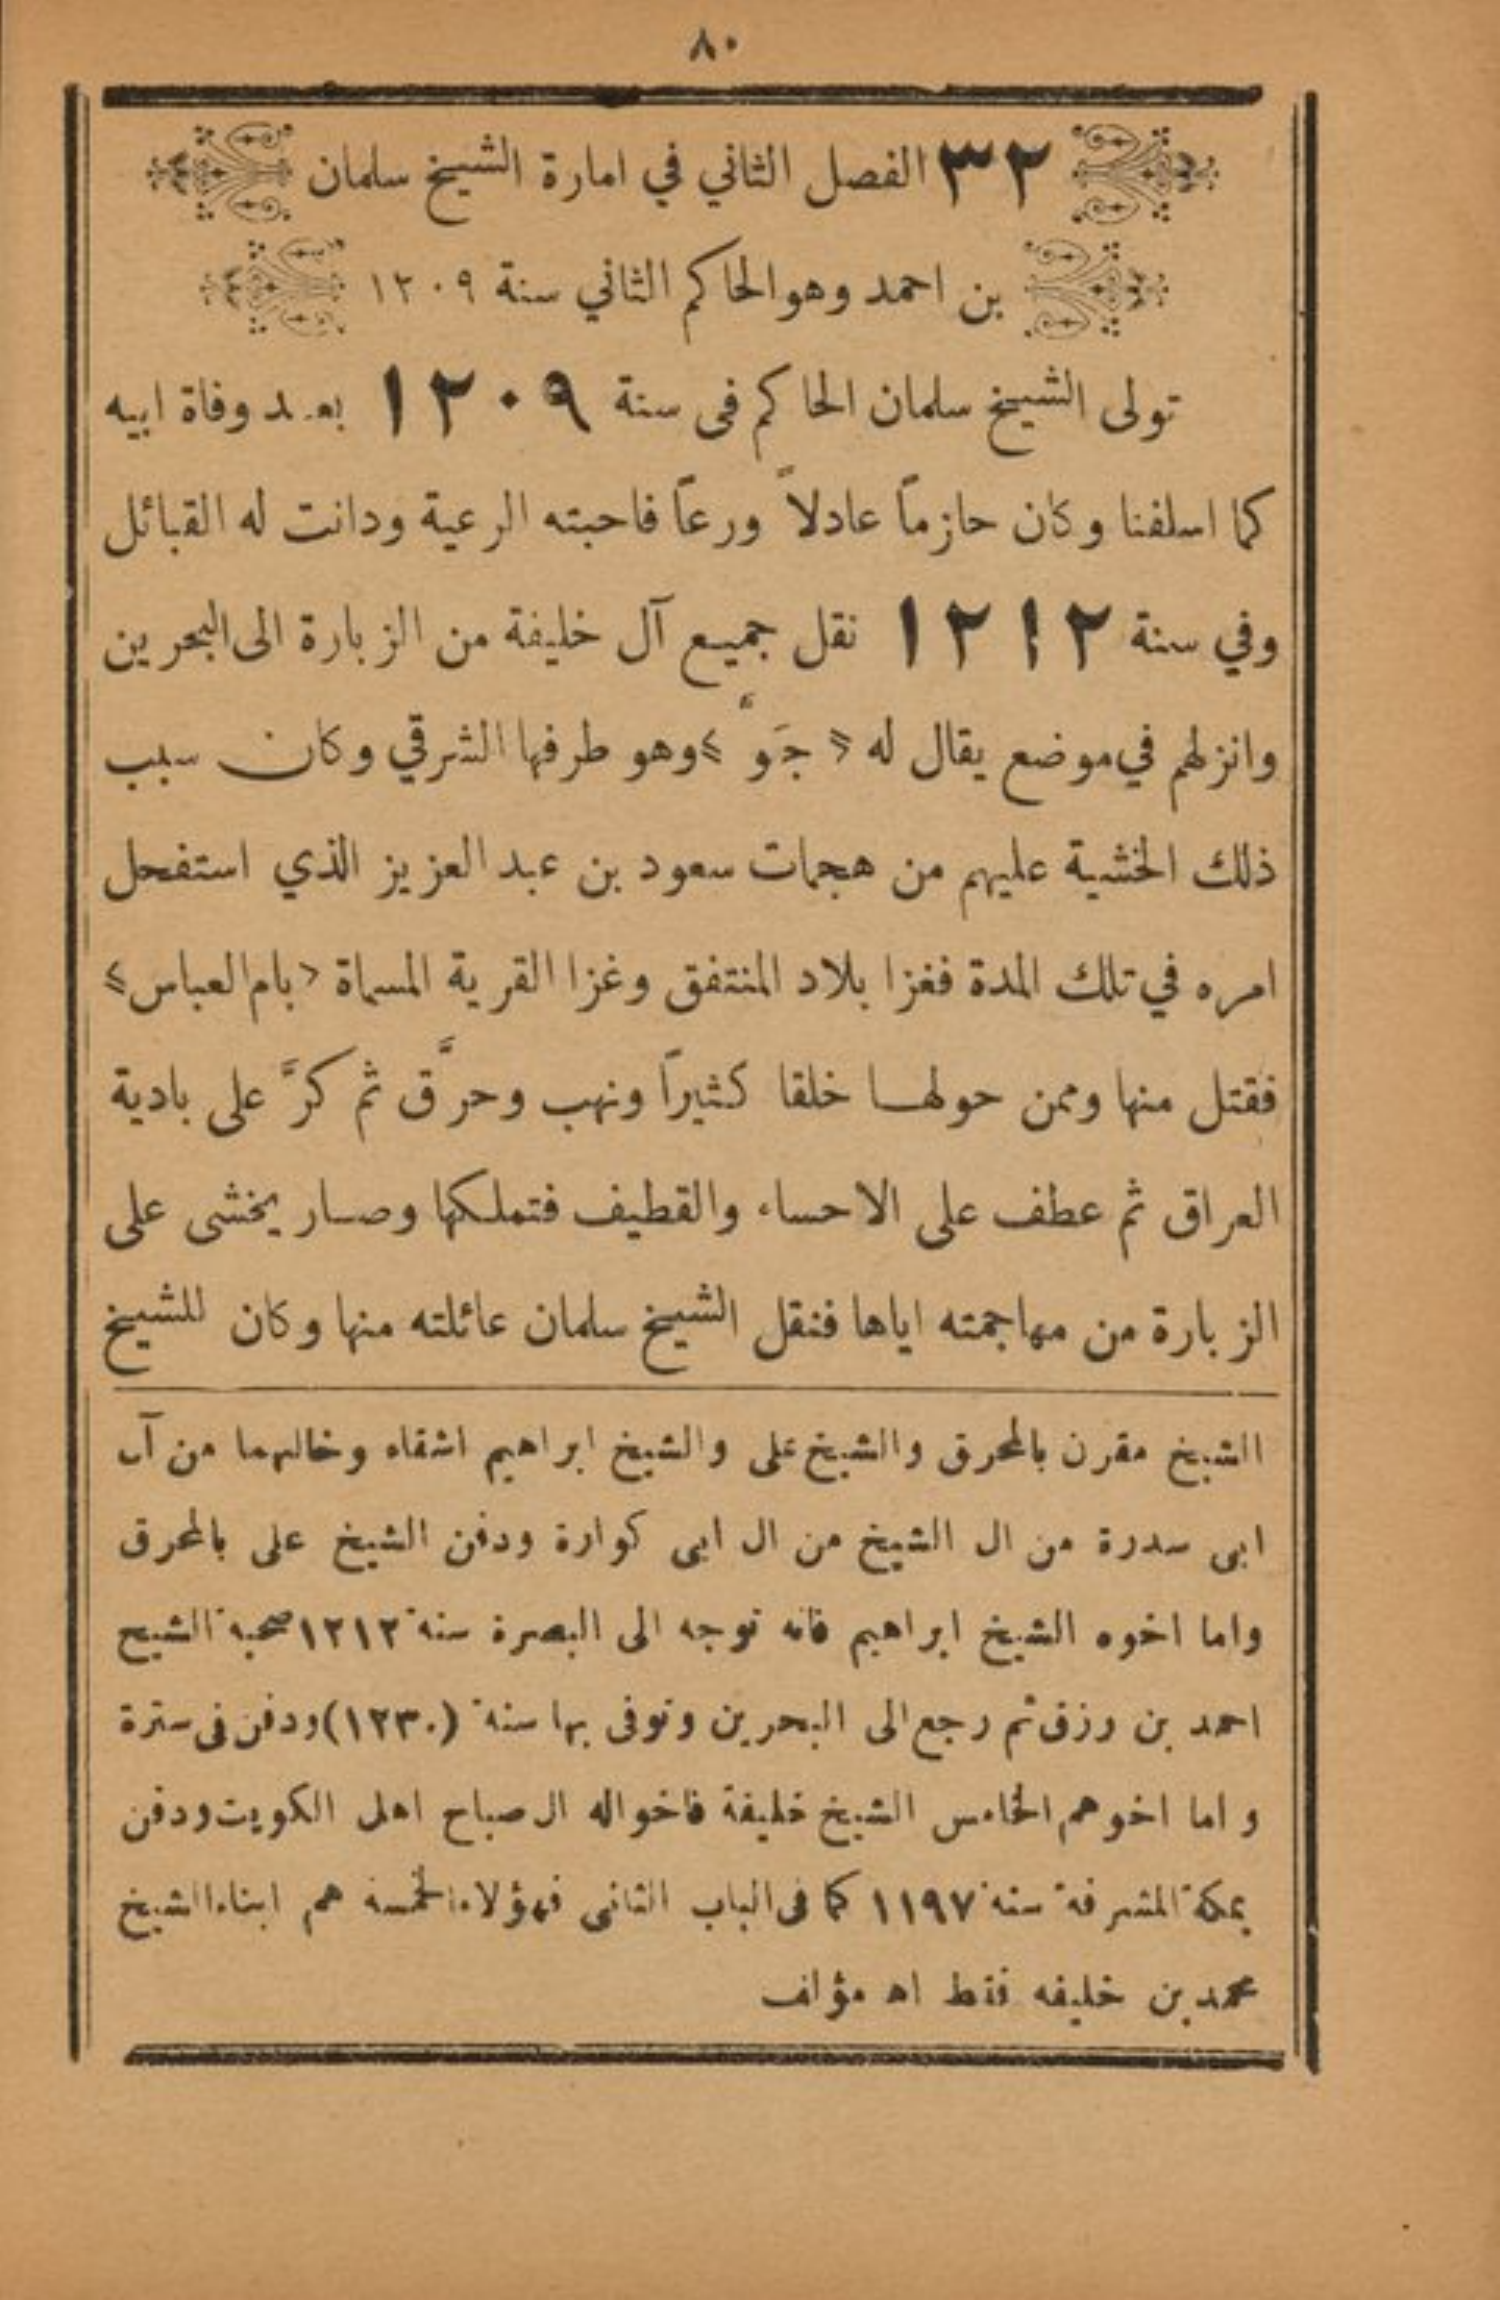 ٨٠
٣٢ الفصل الثاني في امارة الشيخ سلمان
بن احمد وهو الحاكم الثاني سنة ١٢٠٩
تولى الشيخ سلمان الحاكم فى سنة ١٢٠٩ بعد وفاة ابيه
كما اسلفنا وكان حازماً عادلاً ورعاً فاحبته الرعية ودانت له القبائل
وفي سنة ١٢١٢ نقل جميع آل خليفة من الزبارة الى البحرين
وانزلهم في موضع يقال له « جَوّ » وهو طرفها الشرقي وكان سبب
ذلك الخشية عليهم من هجمات سعود بن عبد العزيز الذي استفحل
امره في تلك المدة فغزا بلاد المنتفق وغزا القرية المسماة « بام العباس »
فقتل منها وممن حولها خلقا كثيراً ونهب وحرَّق ثم كرَّ على بادية
العراق ثم عطف على الاحساء والقطيف فتملكها وصار يخشى على
الزبارة من مهاجمته اياها فنقل الشيخ سلمان عائلته منها وكان للشيخ
الشيخ مقرن بالمحرق والشيخ على والشيخ ابراهيم اشقاه وخالهما من آل
ابى سدرة من ال الشيخ من ال ابى كوارة ودفن الشيخ على بالمحرق
واما اخوه الشيخ ابراهيم فانه توجه الى البصرة سنة ١٢١٢ صحبة الشيخ
احمد بن رزق ثم رجع الى البحرين وتوفى بها سنة (١٢٣٠) ودفن فى سترة
و اما اخوهم الخامس الشيخ خليفة فاخواله ال صباح اهل الكويت ودفن
بمكة المشرفة سنة ١١٩٧ كما فى الباب الثانى فهؤلاء الخمسة هم ابناء الشيخ
محمد بن خليفه فقط اه مؤلف